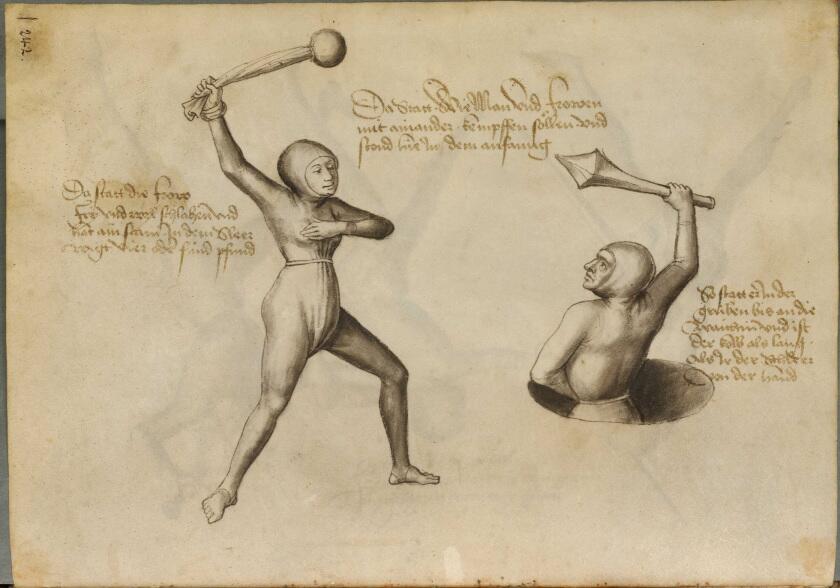 242.
Da Statt Wie Man und frowen
mit ainander kempffen söllen und
stond hie In dem anfanng
Da statt die frow
fry und wyl schlahen und
hat ain stain In dem Sleer
wigt vier oder fünf pfund
So statt er In der
gruben bis an die
waichin und ist
der kolb als lang
Als Ir der Schleer
von der hannd